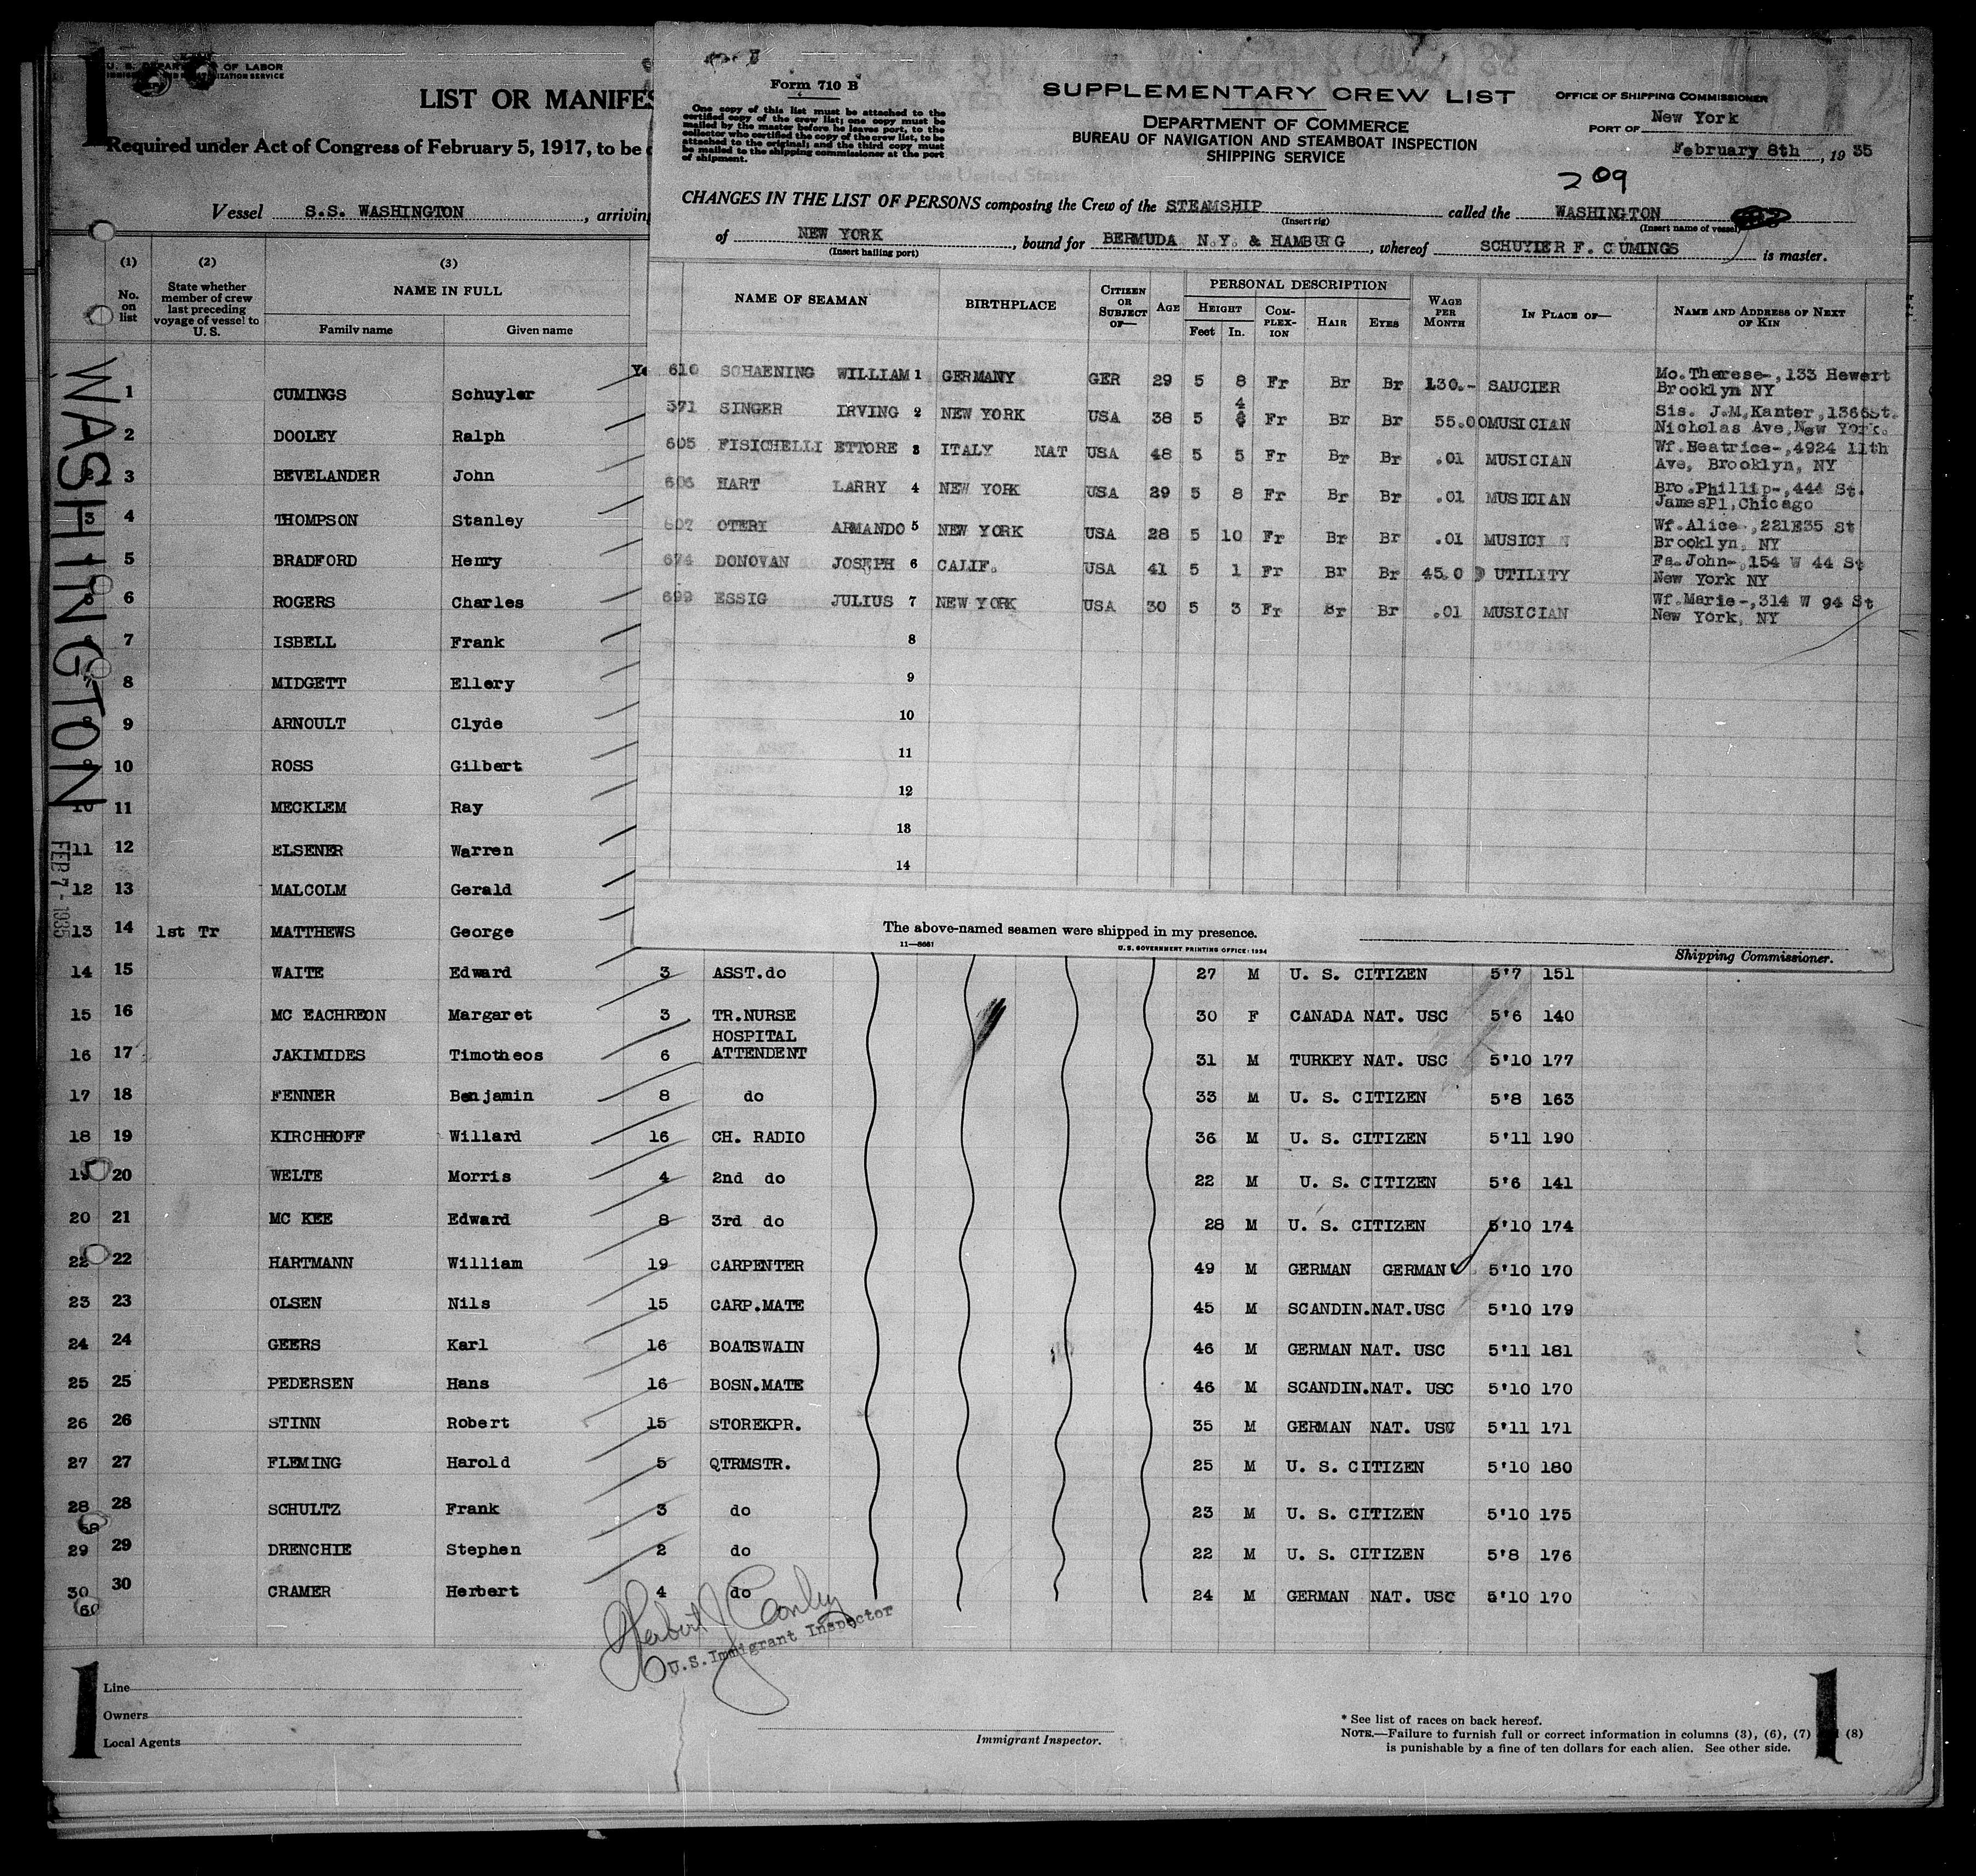 1
U. S. DEPARTMENT OF LABOR
LIST OR MANIFES
Required under Act of Congress of February 5, 1917, to be
Vessel S.S. WASHINGTON, arriving
(1) (2) (3)
No. on list
State whether member of crew last preceding voyage of vessel to U. S.
NAME IN FULL
Family name Given name
WASHINGTON
FEB 7 - 1935
1 CUMINGS Schuyler
2 DOOLEY Ralph
3 BEVELANDER John
3 4 THOMPSON Stanley
5 BRADFORD Henry
6 ROGERS Charles
7 ISBELL Frank
7 8 MIDGETT Ellery
9 ARNOULT Clyde
10 ROSS Gilbert
10 11 MECKLEM Ray
11 12 ELSENER Warren
12 13 MALCOLM Gerald
13 14 1st Tr MATTHEWS George
Form 710 B
One copy of this list must be attached to the
certified copy of the crew list; one copy must be
mailed by the master before he leaves port, to the
collector who certified the copy of the crew list, to be
attached to the original; and the third copy must
be mailed to the shipping commissioner at the port
of shipment.
SUPPLEMENTARY CREW LIST
DEPARTMENT OF COMMERCE
BUREAU OF NAVIGATION AND STEAMBOAT INSPECTION
SHIPPING SERVICE
OFFICE OF SHIPPING COMMISSIONER
PORT OF New York
February 8th, 1935
209
CHANGES IN THE LIST OF PERSONS composing the Crew of the STEAMSHIP called the WASHINGTON
(Insert rig) (Insert name of vessel)
of NEW YORK, bound for BERMUDA N.Y. & HAMBURG, whereof SCHUYLER F. CUMINGS is master.
(Insert hailing port)
NAME OF SEAMAN BIRTHPLACE CITIZEN OR SUBJECT OF— AGE PERSONAL DESCRIPTION HEIGHT Feet In. COMPLEXION HAIR EYES WAGE PER MONTH IN PLACE OF— NAME AND ADDRESS OF NEXT OF KIN
610 SCHAENING WILLIAM 1 GERMANY GER 29 5 8 Fr Br Br 130.- SAUCIER Mo. Therese-, 133 Hewert Brooklyn NY
571 SINGER IRVING 2 NEW YORK USA 38 5 4 Fr Br Br 55.00 MUSICIAN Sis. J.M.Kanter, 1366St. Nicholas Ave, New York.
605 FISICHELLI ETTORE 3 ITALY NAT USA 48 5 5 Fr Br Br .01 MUSICIAN Wf. Beatrice-, 4924 11th Ave, Brooklyn, NY
606 HART LARRY 4 NEW YORK USA 29 5 8 Fr Br Br .01 MUSICIAN Bro. Phillip-, 444 St. JamesPl, Chicago
607 OTERI ARMANDO 5 NEW YORK USA 28 5 10 Fr Br Br .01 MUSICI N Wf. Alice-, 221E35 St Brooklyn, NY
674 DONOVAN JOSEPH 6 CALIF. USA 41 5 1 Fr Br Br 45.0 UTILITY Fa. John-, 154 W 44 St New York NY
699 ESSIG JULIUS 7 NEW YORK USA 30 5 3 Fr Br Br .01 MUSICIAN Wf. Marie-, 314 W 94 St New York, NY
8
9
10
11
12
13
14
The above-named seamen were shipped in my presence.
U. S. GOVERNMENT PRINTING OFFICE: 1934
Shipping Commissioner.
14 15 WAITE Edward 3 ASST.do 27 M U. S. CITIZEN 5'7 151
15 16 MC EACHREON Margaret 3 TR.NURSE 30 F CANADA NAT. USC 5'6 140
16 17 JAKIMIDES Timotheos 6 HOSPITAL ATTENDENT 31 M TURKEY NAT. USC 5'10 177
17 18 FENNER Benjamin 8 do 33 M U. S. CITIZEN 5'8 163
18 19 KIRCHHOFF Willard 16 CH. RADIO 36 M U. S. CITIZEN 5'11 190
19 20 WELTE Morris 4 2nd do 22 M U. S. CITIZEN 5'6 141
20 21 MC KEE Edward 8 3rd do 28 M U. S. CITIZEN 5'10 174
22 22 HARTMANN William 19 CARPENTER 49 M GERMAN GERMAN 5'10 170
23 23 OLSEN Nils 15 CARP.MATE 45 M SCANDIN.NAT.USC 5'10 179
24 24 GEERS Karl 16 BOATSWAIN 46 M GERMAN NAT. USC 5'11 181
25 25 PEDERSEN Hans 16 BOSN.MATE 46 M SCANDIN.NAT. USC 5'10 170
26 26 STINN Robert 15 STOREKPR. 35 M GERMAN NAT. USC 5'11 171
27 27 FLEMING Harold 5 QTRMSTR. 25 M U. S. CITIZEN 5'10 180
28 28 SCHULTZ Frank 3 do 23 M U. S. CITIZEN 5'10 175
29 29 DRENCHIE Stephen 2 do 22 M U. S. CITIZEN 5'8 176
30 30 CRAMER Herbert 4 do 24 M GERMAN NAT. USC 5'10 170
60
Herbert J Conley
U.S. Immigrant Inspector
1
Line
Owners
Local Agents
Immigrant Inspector.
* See list of races on back hereof.
NOTE.—Failure to furnish full or correct information in columns (3), (6), (7) (8)
is punishable by a fine of ten dollars for each alien. See other side.
1